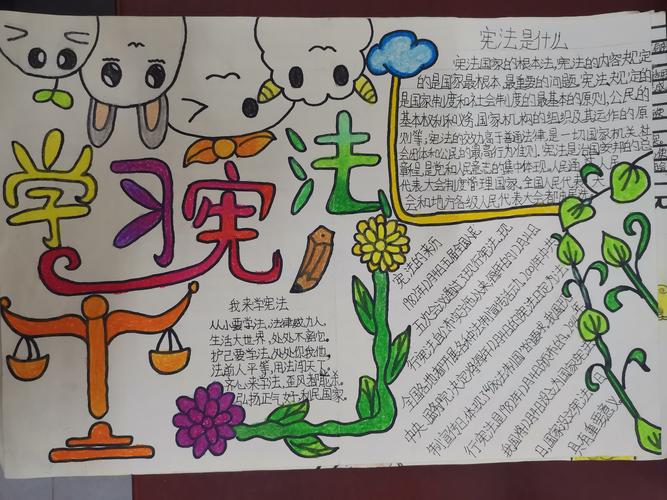 学习宪法
宪法是什么
宪法国家的根本法,宪法的内容规定
的是国家最根本、最重要的问题。宪法规定的
是国家制度和社会制度的最基本的原则,公民的
基本权利和义务,国家机构的组织及其运作的原
则等,宪法的效力高于普通法律,是一切国家机关、社
会团体和公民的最高行为准则。宪法是治国安邦的总
章程,是党和人民意志的集中体现。人民通
代表大会制度管理国家。全国人民代表大
会和地方各级人民代表大会都
我来学宪法
从小要学法,法律威力人。
生活大世界,处处不离它。
护己要学法,处处你我他。
法前人平等,用法闯天下
齐心来学法,歪风都
弘扬正气 利民国家。
宪法的来历
1982年12月4日五届全国人民
五次会议通过了现行宪法。现
行宪法自公布实施以来,每年的12月4日
全国各地都开展各种法制宣传活动。2001年中共
中央、国务院决定将每年12月4日的宪法日定为法
制宣传日,体现了依法制国的要求。
行宪法是1982年12月4日颁布的。2014年
我国将12月4日设立为国家宪法
日,国家设立宪法
具有重要意义